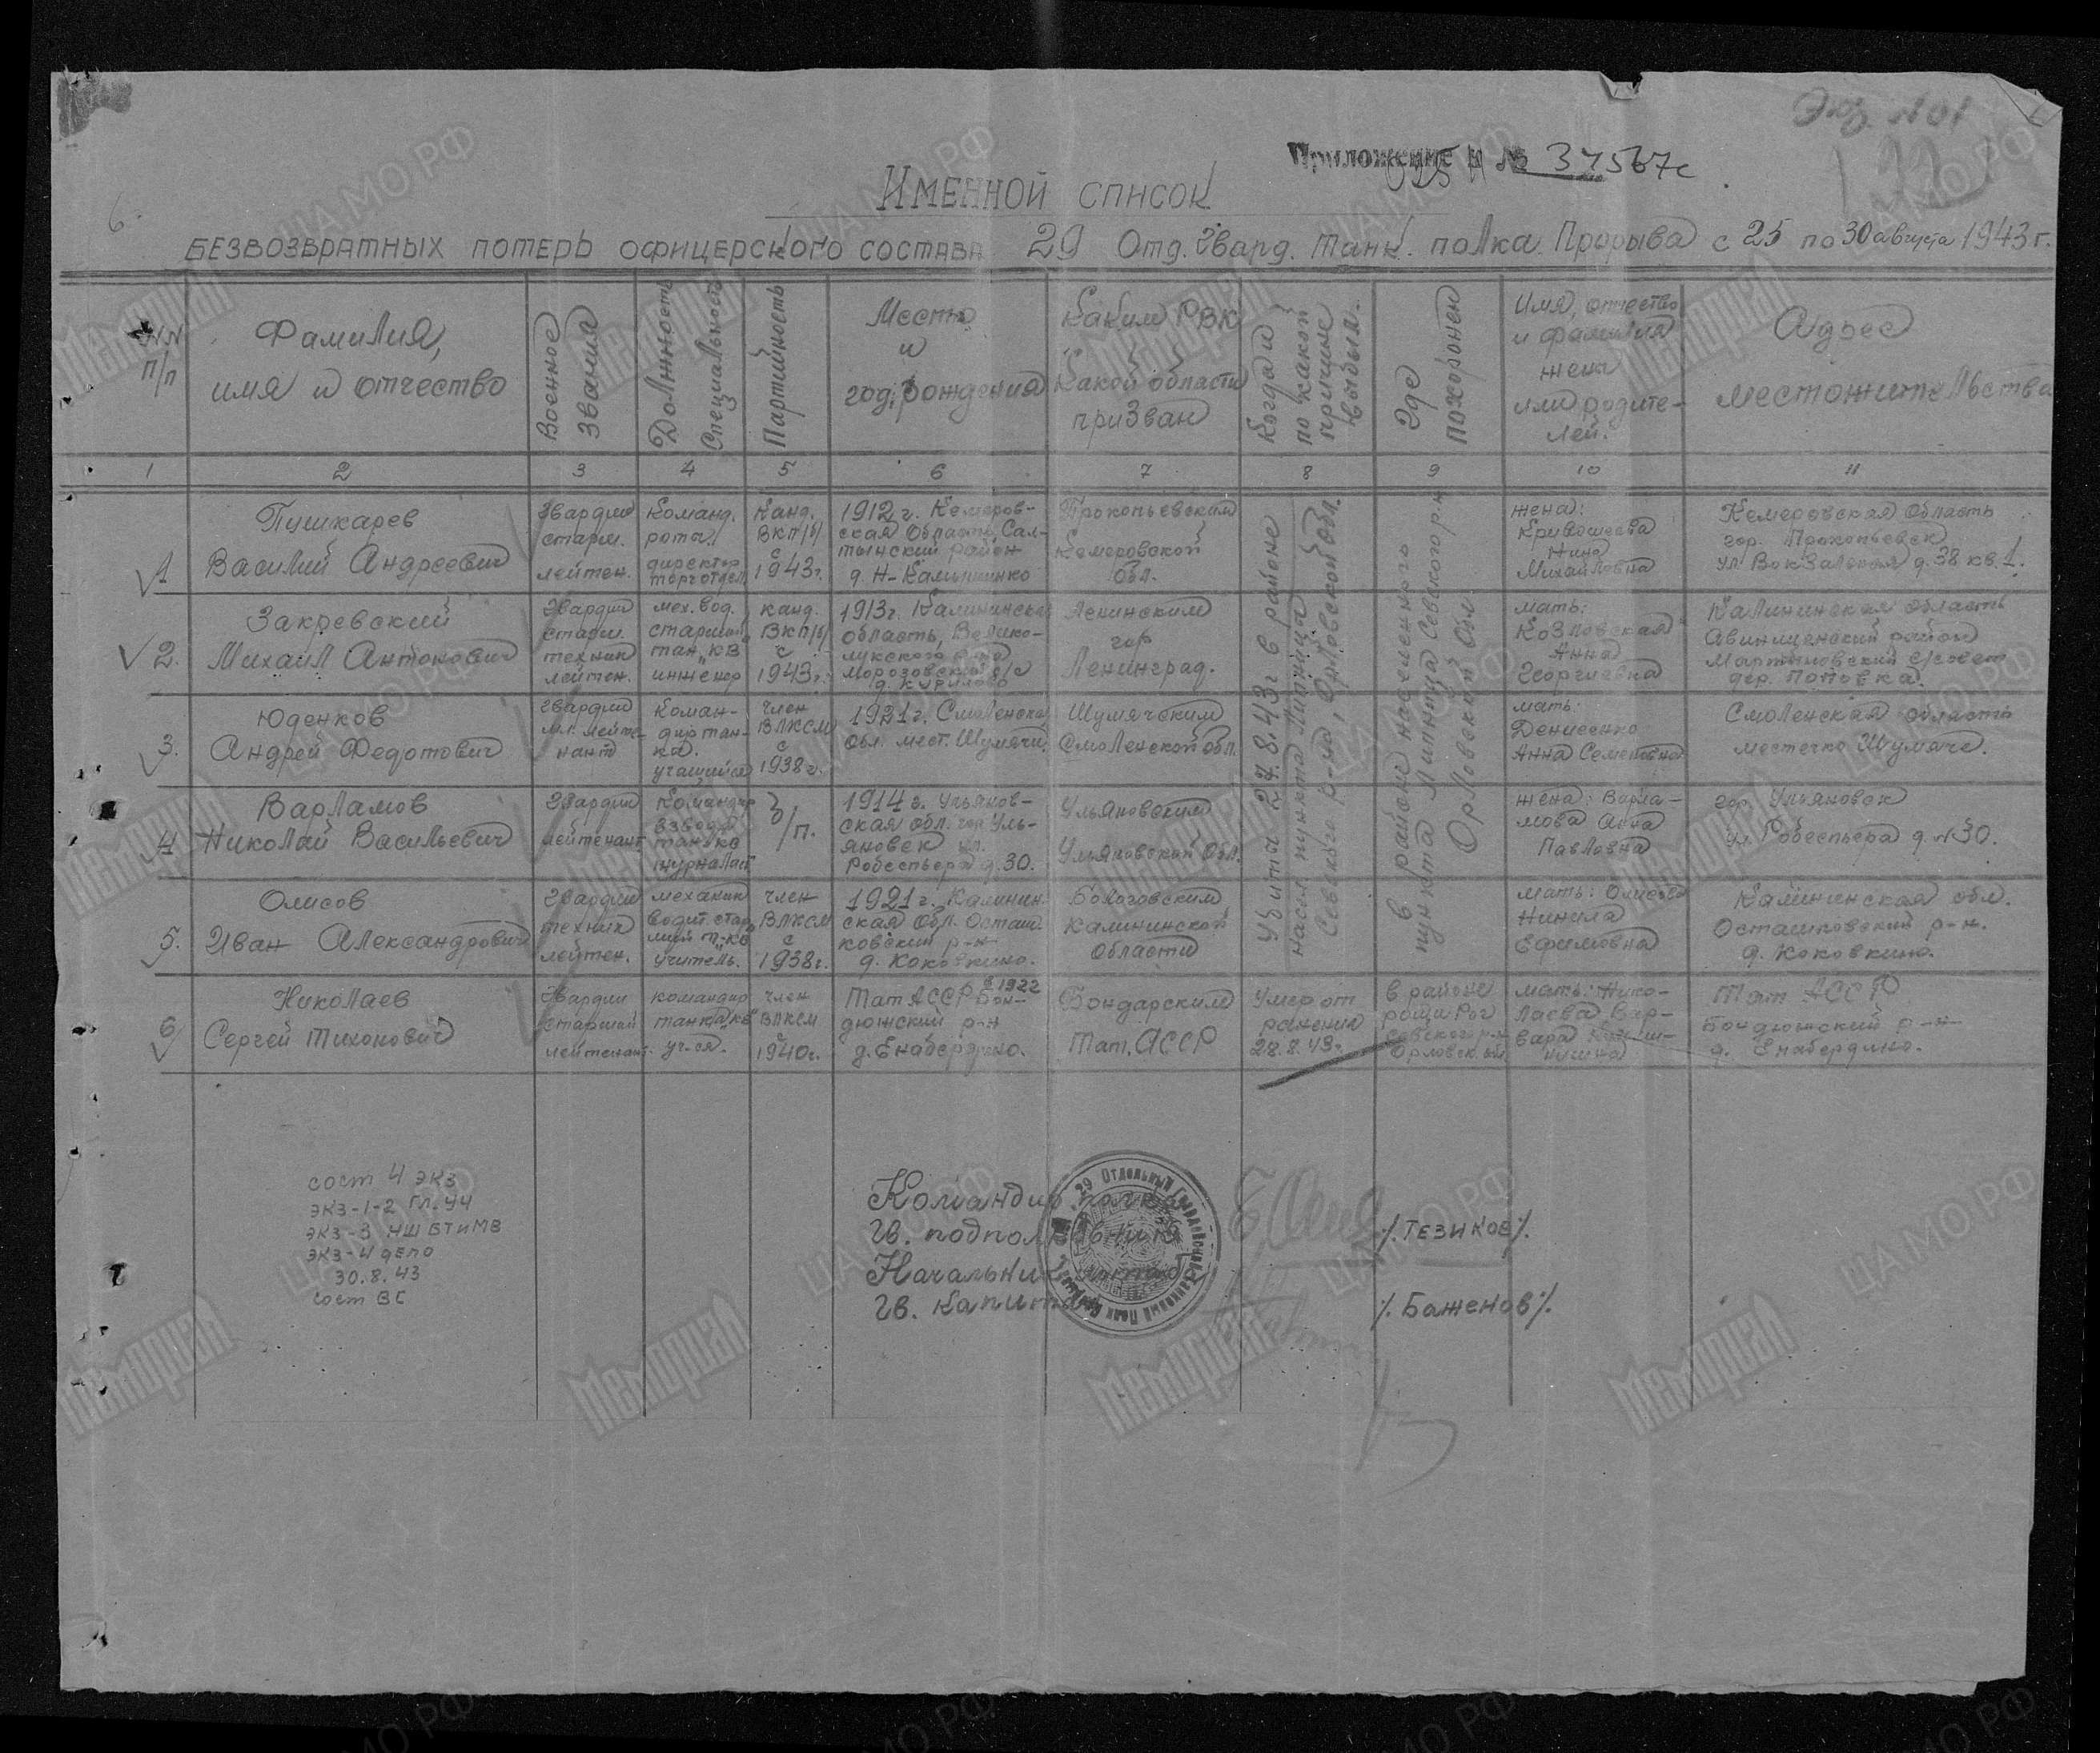 Экз. №1
Приложение к № 37567с
Именной список
безвозвратных потерь офицерского состава 29 Отд. Гвард. танк. полка Прорыва с 25 по 30 августа 1943 г.
NN п/п
Фамилия,
имя и отчество
Военное
звание
Должность
Специальность
Партийность
Место
и
год рождения
Каким РВК
Какой области
призван
Когда и
по какой
причине
выбыл.
Где
похоронен
Имя, отчество
и фамилия
жены
или родите-
лей.
Адрес
местожительства
1 2 3 4 5 6 7 8 9 10 11
1
Пушкарев
Василий Андреевич
Гвардии
старш.
лейтен.
Команд.
роты
директор
торготдел
Канд.
ВКП/б/
с
1943г.
1912 г. Кемеров-
ская область, Сал-
тынский район
д. Н-Камышинко
Прокопьевским
Кемеровской
обл.
жена:
Кривошеева
Нина
Михайловна
Кемеровская область
гор. Прокопьевск
ул. Вокзальная д.38 кв.1.
2.
Закревский
Михаил Антонович
Гвардии
старш.
техник
лейтен.
мех. вод.
старший
тан. "КВ"
инженер
канд.
ВКП/б/
с
1943г.
1913г. Калининская
область, Велико-
лукского р-на
Морозовский с/с
д. Курилово
Ленинским
гор
Ленинград.
мать:
Козловская
Анна
Георгиевна
Калининская область
Мартыновский с/совет
дер. Поповка.
3.
Юденков
Андрей Федотович
Гвардии
мл. лейте-
нант
Коман-
дир тан-
ка.
учащийся
член
ВЛКСМ
с
1938г.
1921г. Смоленская
обл. мест. Шумячи.
Шумячским
Смоленской обл.
мать:
Денисенко
Анна Семеновна
Смоленская область
местечко Шумячи.
4
Варламов
Николай Васильевич
Гвардии
лейтенант
Командир
взвода
танков
журналист
б/п.
1914г. Ульянов-
ская обл. гор. Уль-
яновск ул.
Робеспьера д.30.
Ульяновским
Ульяновской обл.
жена: Варла-
мова Анна
Павловна
гор. Ульяновск
ул. Робеспьера д. №30.
5.
Олисов
Иван Александрович
Гвардии
техник
лейтен.
механик
водит. стар-
ший т. "КВ"
учитель.
член
ВЛКСМ
с
1938г.
1921г. Калинин-
ская обл. Осташ-
ковский р-н
д. Коковкино.
Бологовским
Калининской
области
мать: Олисова
Ненила
Ефимовна
Калининская обл.
Осташковский р-н.
д. Коковкино.
Убиты 27.8.43г в районе
насел. пункта Липница
Севского р-на, Орловской обл.
в районе населенного
пункта Липница Севского р-н
Орловской обл
6
Николаев
Сергей Тихонович
Гвардии
старший
лейтенант.
командир
танка "КВ"
уч-ся.
член
ВЛКСМ
с
1940г.
1922
Тат АССР Бон-
дюжский р-н
д. Енабердино.
Бондарским
Тат. АССР
Умер от
ранения
28.8.43г.
в районе
рощи Рог
Севского р-н
мать: Нико-
лаева Вар-
вара
Тат АССР
Бондюжский р-н
д. Енабердино.
сост 4 экз
экз-1-2 ГЛ.УЧ
экз-3 НШ БТиМВ
экз-4 дело
30.8.43
сост ВС
Командир полка
Гв. подполковник /.Тезиков/.
Начальник штаба
Гв. капитан /.Баженов/.
29 Отдельный Гвардейский Танковый Полк Прорыва